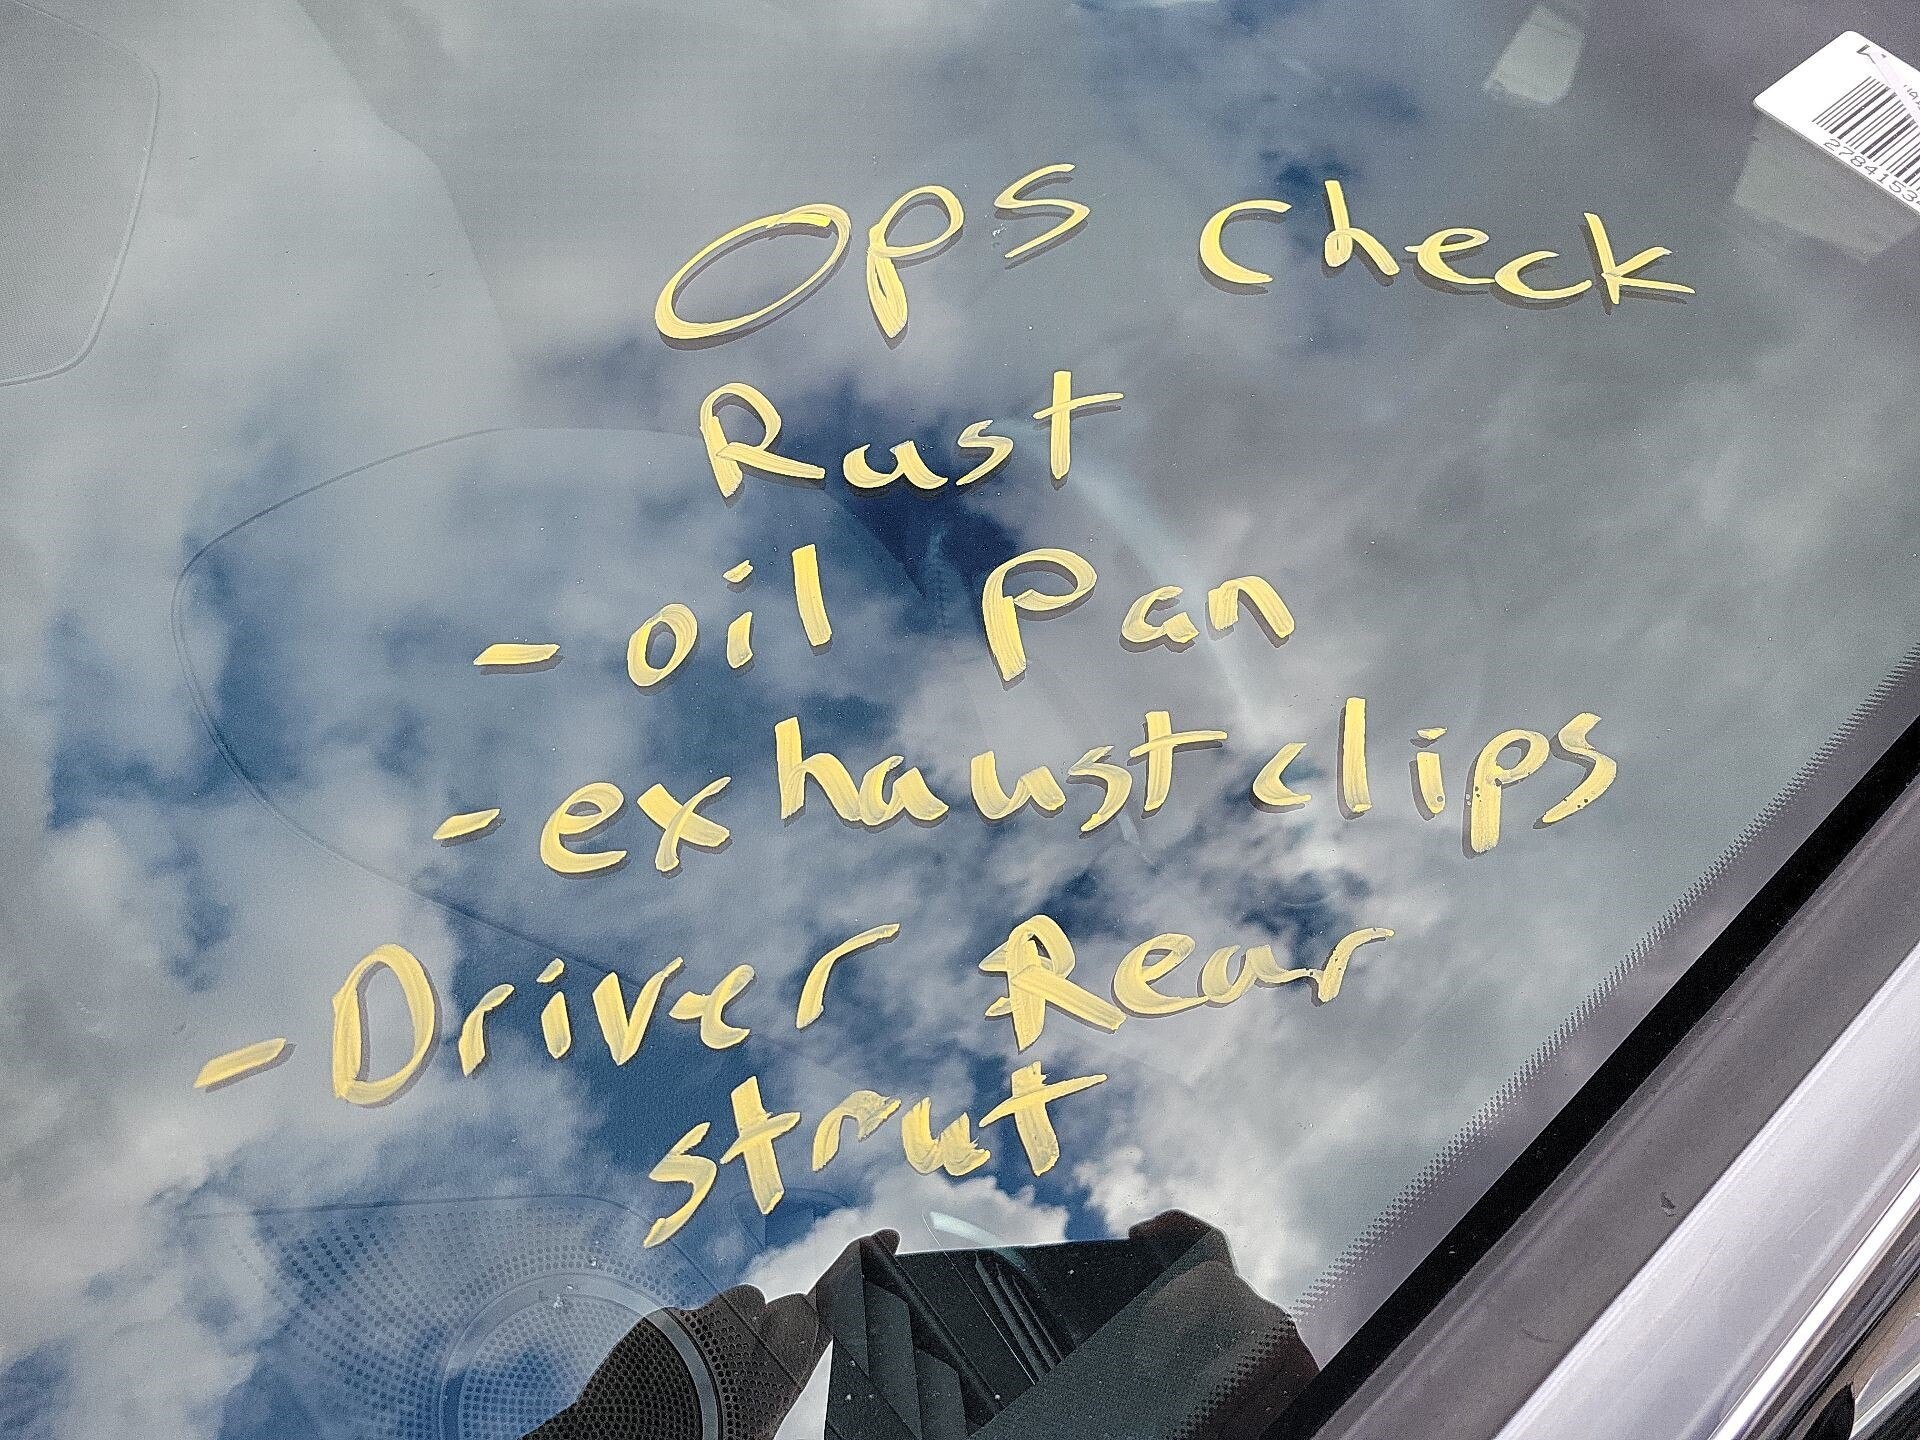 Ops check
Rust
- oil pan
- exhaust clips
- Driver Rear
strut